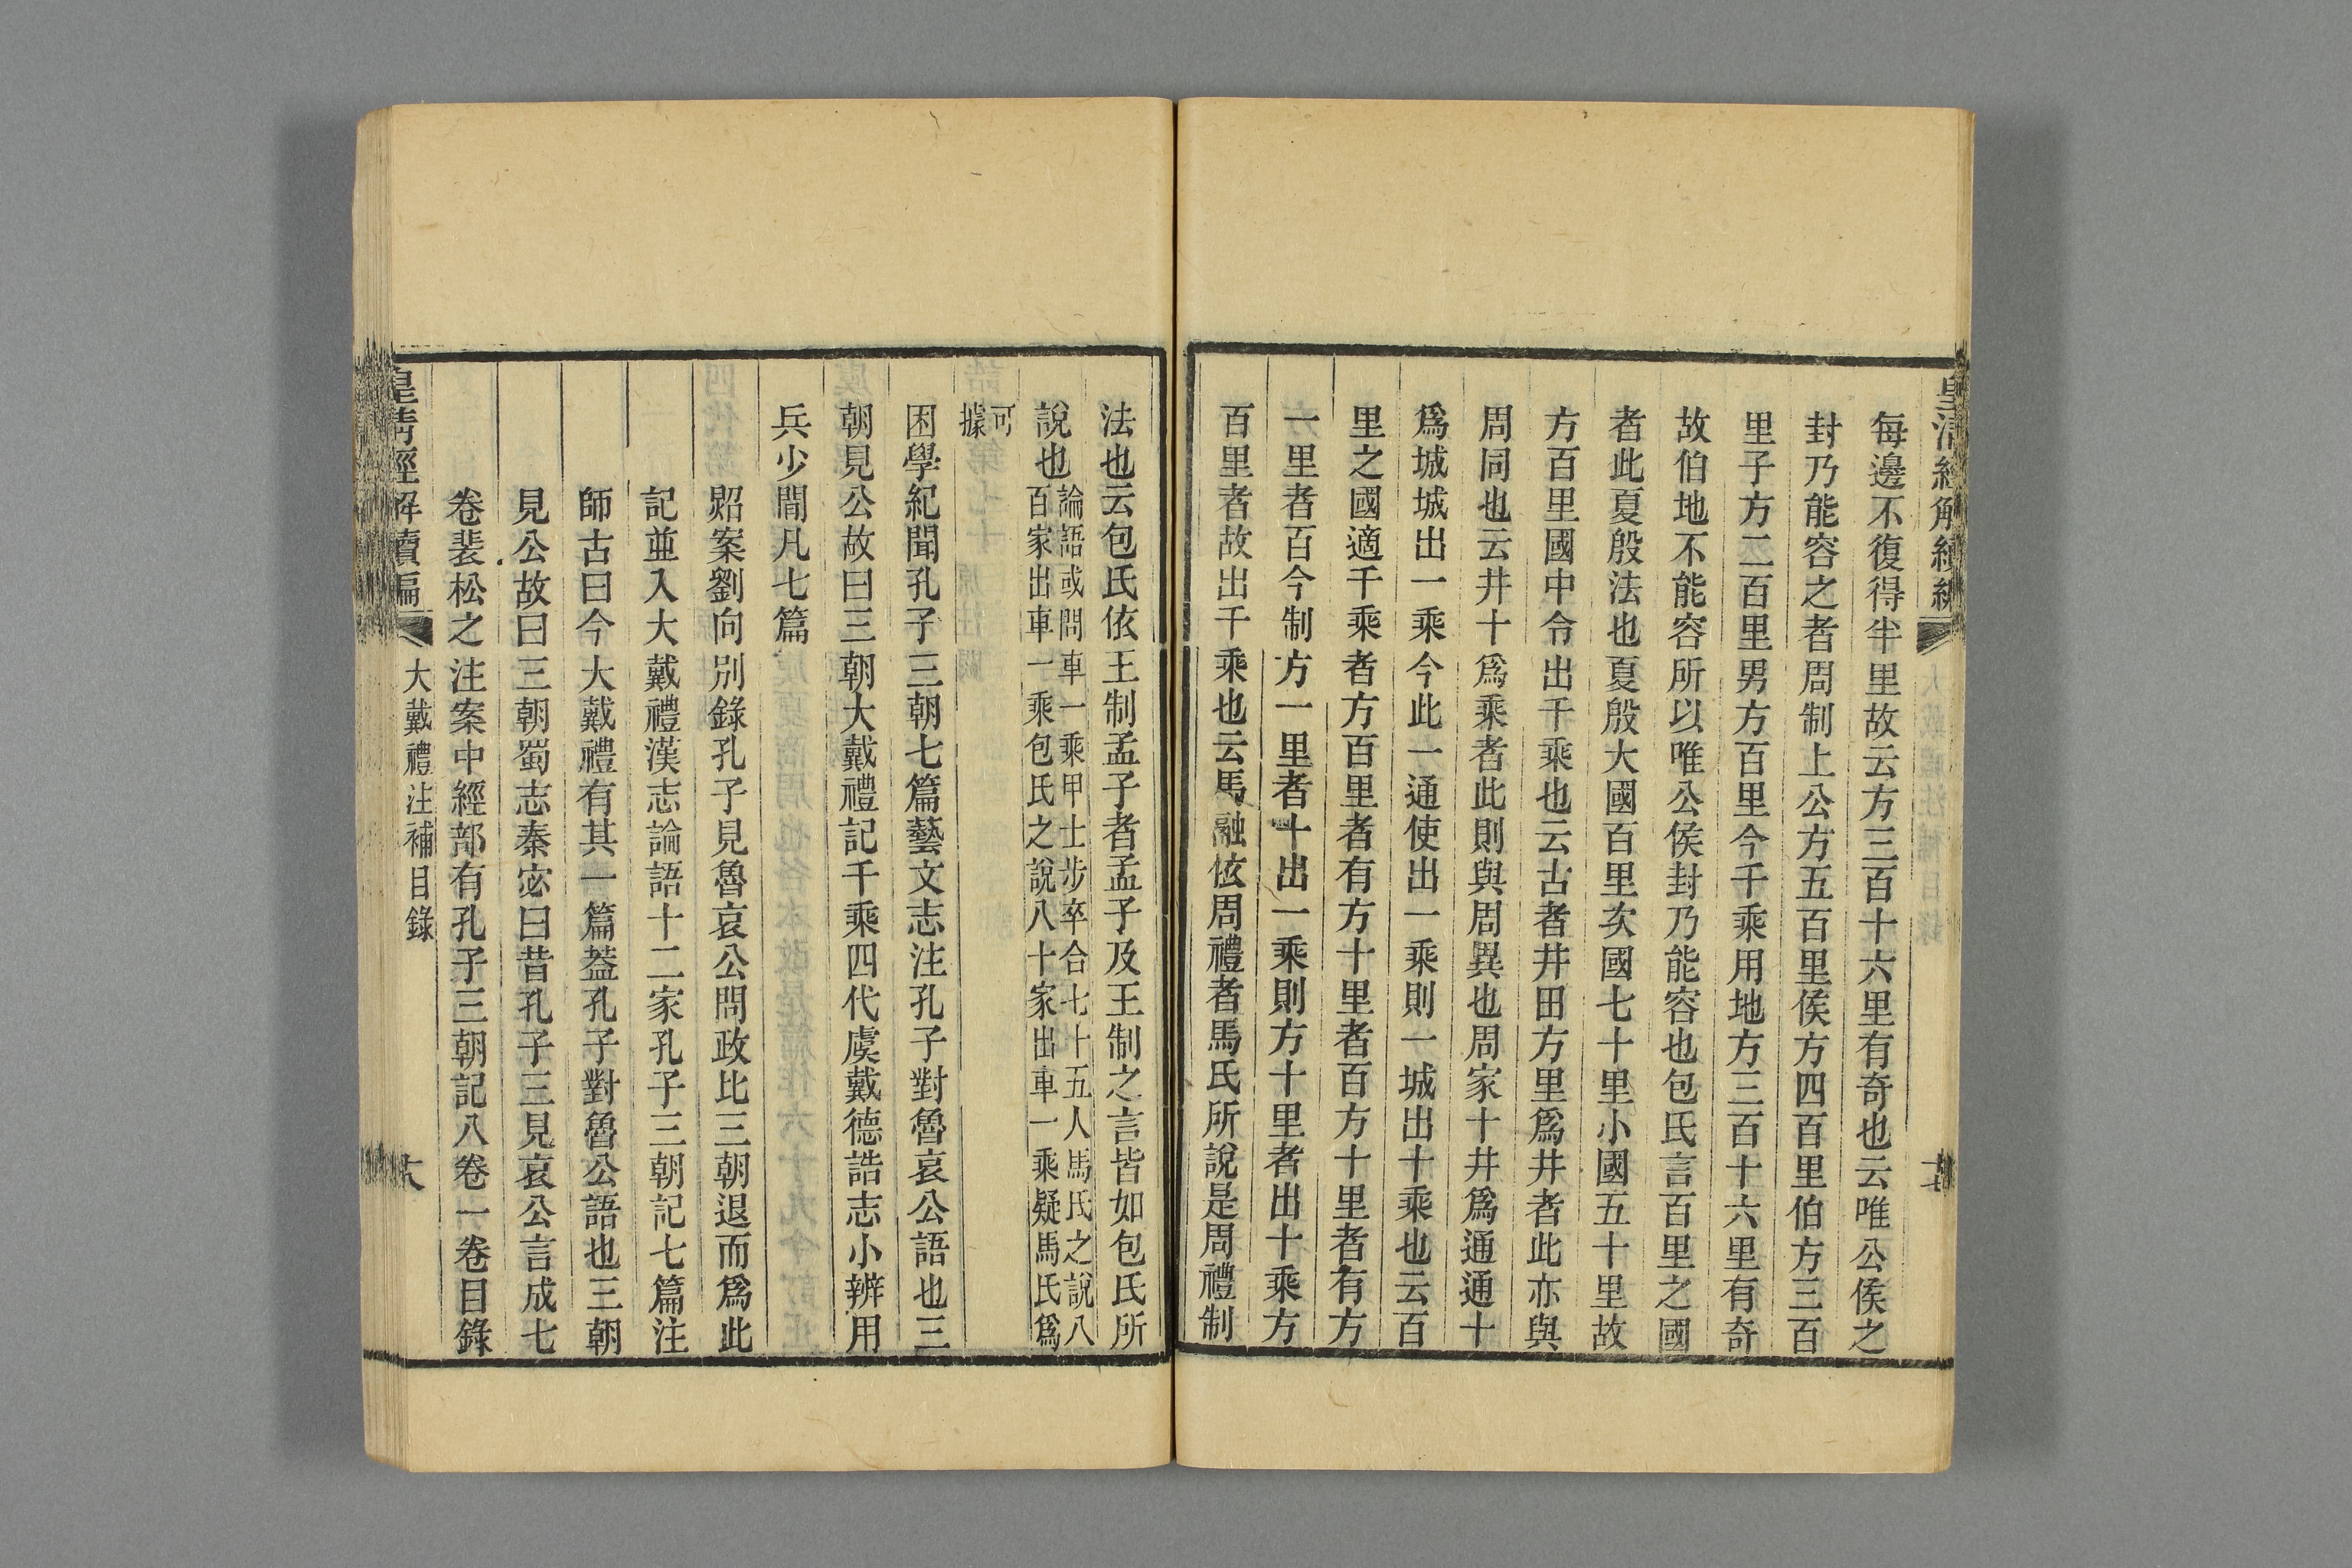 每邊不復得半里故云方三百十六里有奇也云唯公侯之
封乃能容之者周制上公方五百里侯方四百里伯方三百
里子方二百里男方百里今千乘用地方三百十六里有奇
故伯地不能容所以唯公侯封乃能容也包氏言百里之國
者此夏殷法也夏殷大國百里次國七十里小國五十里故
方百里國中令出千乘也云古者井田方里爲井者此亦與
周同也云井十爲乘者此則與周異也周家十井爲通通十
爲城城出一乘今此一通使出一乘則一城出十乘也云百
里之國適千乘者方百里者有方十里者百方十里者有方
一里者百今制方一里者十出一乘則方十里者出十乘方
百里者故出千乘也云馬融依周禮者馬氏所說是周禮制
法也云包氏依王制孟子者孟子及王制之言皆如包氏所
說也論語或問車一乘甲士步卒合七十五人馬氏之說八
百家出車一乘包氏之說八十家出車一乘疑馬氏爲
可
據
困學紀聞孔子三朝七篇藝文志注孔子對魯哀公語也三
朝見公故曰三朝大戴禮記千乘四代虞戴德誥志小辨用
兵少閒凡七篇
貺案劉向別錄孔子見魯哀公問政比三朝退而爲此
記並入大戴禮漢志論語十二家孔子三朝記七篇注
師古曰今大戴禮有其一篇葢孔子對魯公語也三朝
見公故曰三朝蜀志秦宓曰昔孔子三見哀公言成七
卷裴松之注案中經部有孔子三朝記八卷一卷目錄
皇清經解續編
大戴禮注補目錄